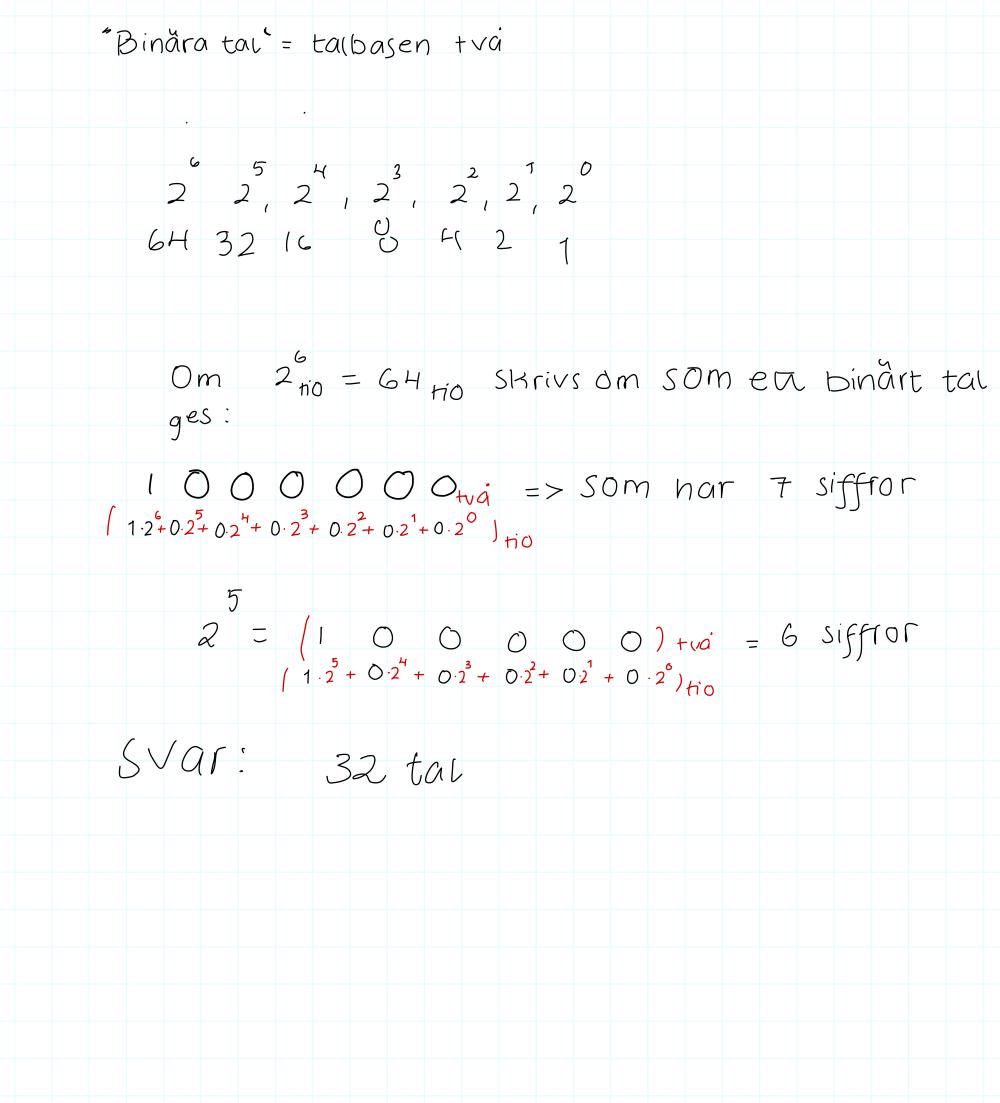 "Binära tal" = talbasen två
2⁶ 2⁵, 2⁴, 2³, 2², 2¹, 2⁰
64 32 16 8 4 2 1
Om 2⁶ tio = 64 tio skrivs om som ett binärt tal
ges:
1 0 0 0 0 0 0 två => som har 7 siffror
(1·2⁶+0·2⁵+0·2⁴+0·2³+0·2²+0·2¹+0·2⁰) tio
2⁵ = (1 0 0 0 0 0) två = 6 siffror
(1·2⁵ + 0·2⁴ + 0·2³ + 0·2² + 0·2¹ + 0·2⁰) tio
Svar: 32 tal